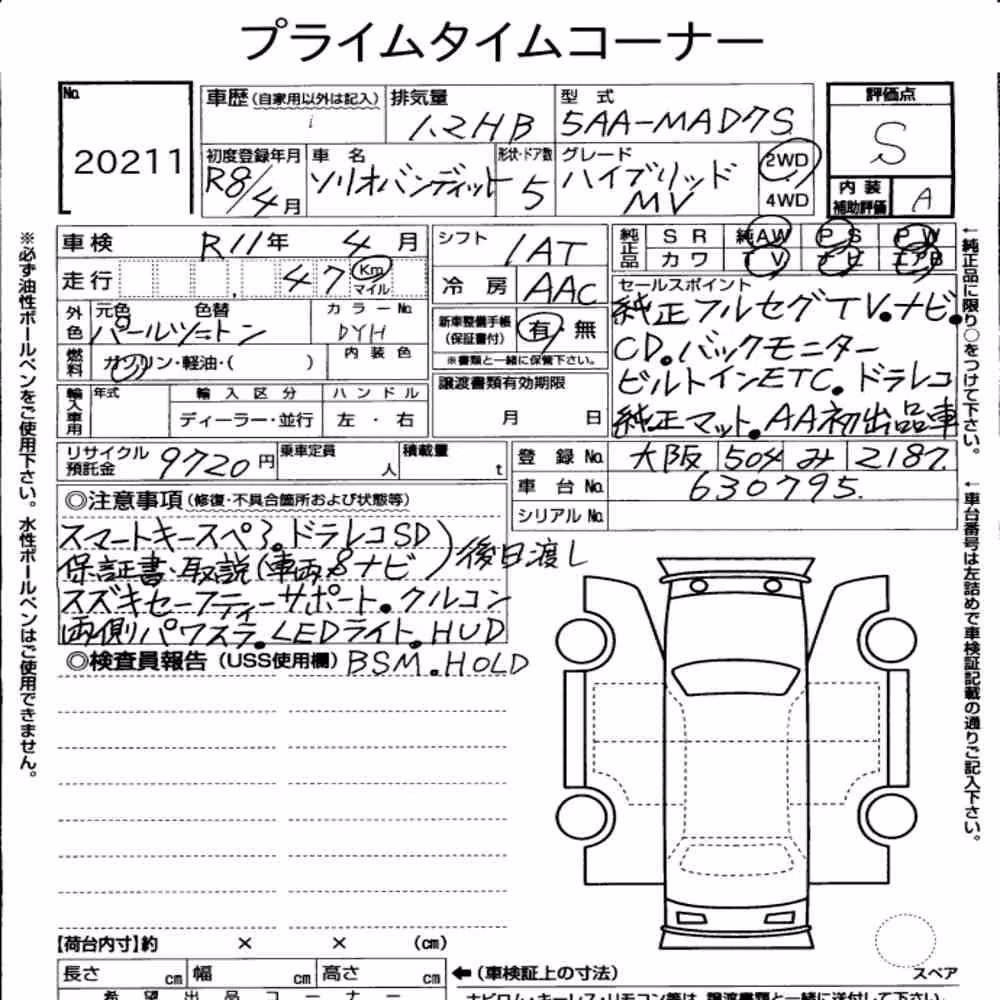 プライムタイムコーナー
No. 20211
車歴 (自家用以外は記入)
排気量 1.2HB
型式 5AA-MAD7S
評価点 S
初度登録年月 R8/4月
車名 ソリオバンディット
形状・ドア数 5
グレード ハイブリッド MV
2WD
4WD
内装補助評価 A
車検 R11年 4月
シフト IAT
純正品 SR 純AW PS PW
カワ TV
走行 47 Km マイル
冷房 AAC
セールスポイント
純正フルセグTV.ナビ.
CD.バックモニター
ビルトインETC.ドラレコ
純正マット.AA初出品車
外色 元色 色替 パールツートン
カラーNo. DYH
新車整備手帳 (保証書付) 有・無
※書類と一緒に保管下さい。
燃料 ガソリン・軽油・( )
内装色
輸入車用 年式 輸入区分 ハンドル
ディーラー・並行 左・右
譲渡書類有効期限
月 日
リサイクル預託金 9720円
乗車定員 人
積載量 t
登録No. 大阪 504 み 2187.
車台No. 630795.
シリアルNo.
◎注意事項 (修復・不具合箇所および状態等)
スマートキースペ3.ドラレコSD
保証書・取説(車両&ナビ) 後日渡し
スズキセーフティーサポート.クルコン
両側パワスラ.LEDライト.HUD
◎検査員報告 (USS使用欄) BSM.HOLD
※必ず油性ボールペンをご使用下さい。水性ボールペンはご使用できません。
←純正品に限り○をつけて下さい。
←車台番号は左詰めで車検証記載の通りご記入下さい。
【荷台内寸】約 × × (cm)
長さ cm 幅 cm 高さ cm
←(車検証上の寸法)
スペア
希望出品コーナー
ナビロム・キーレス・リモコン等は、譲渡書類と一緒に送付して下さい。